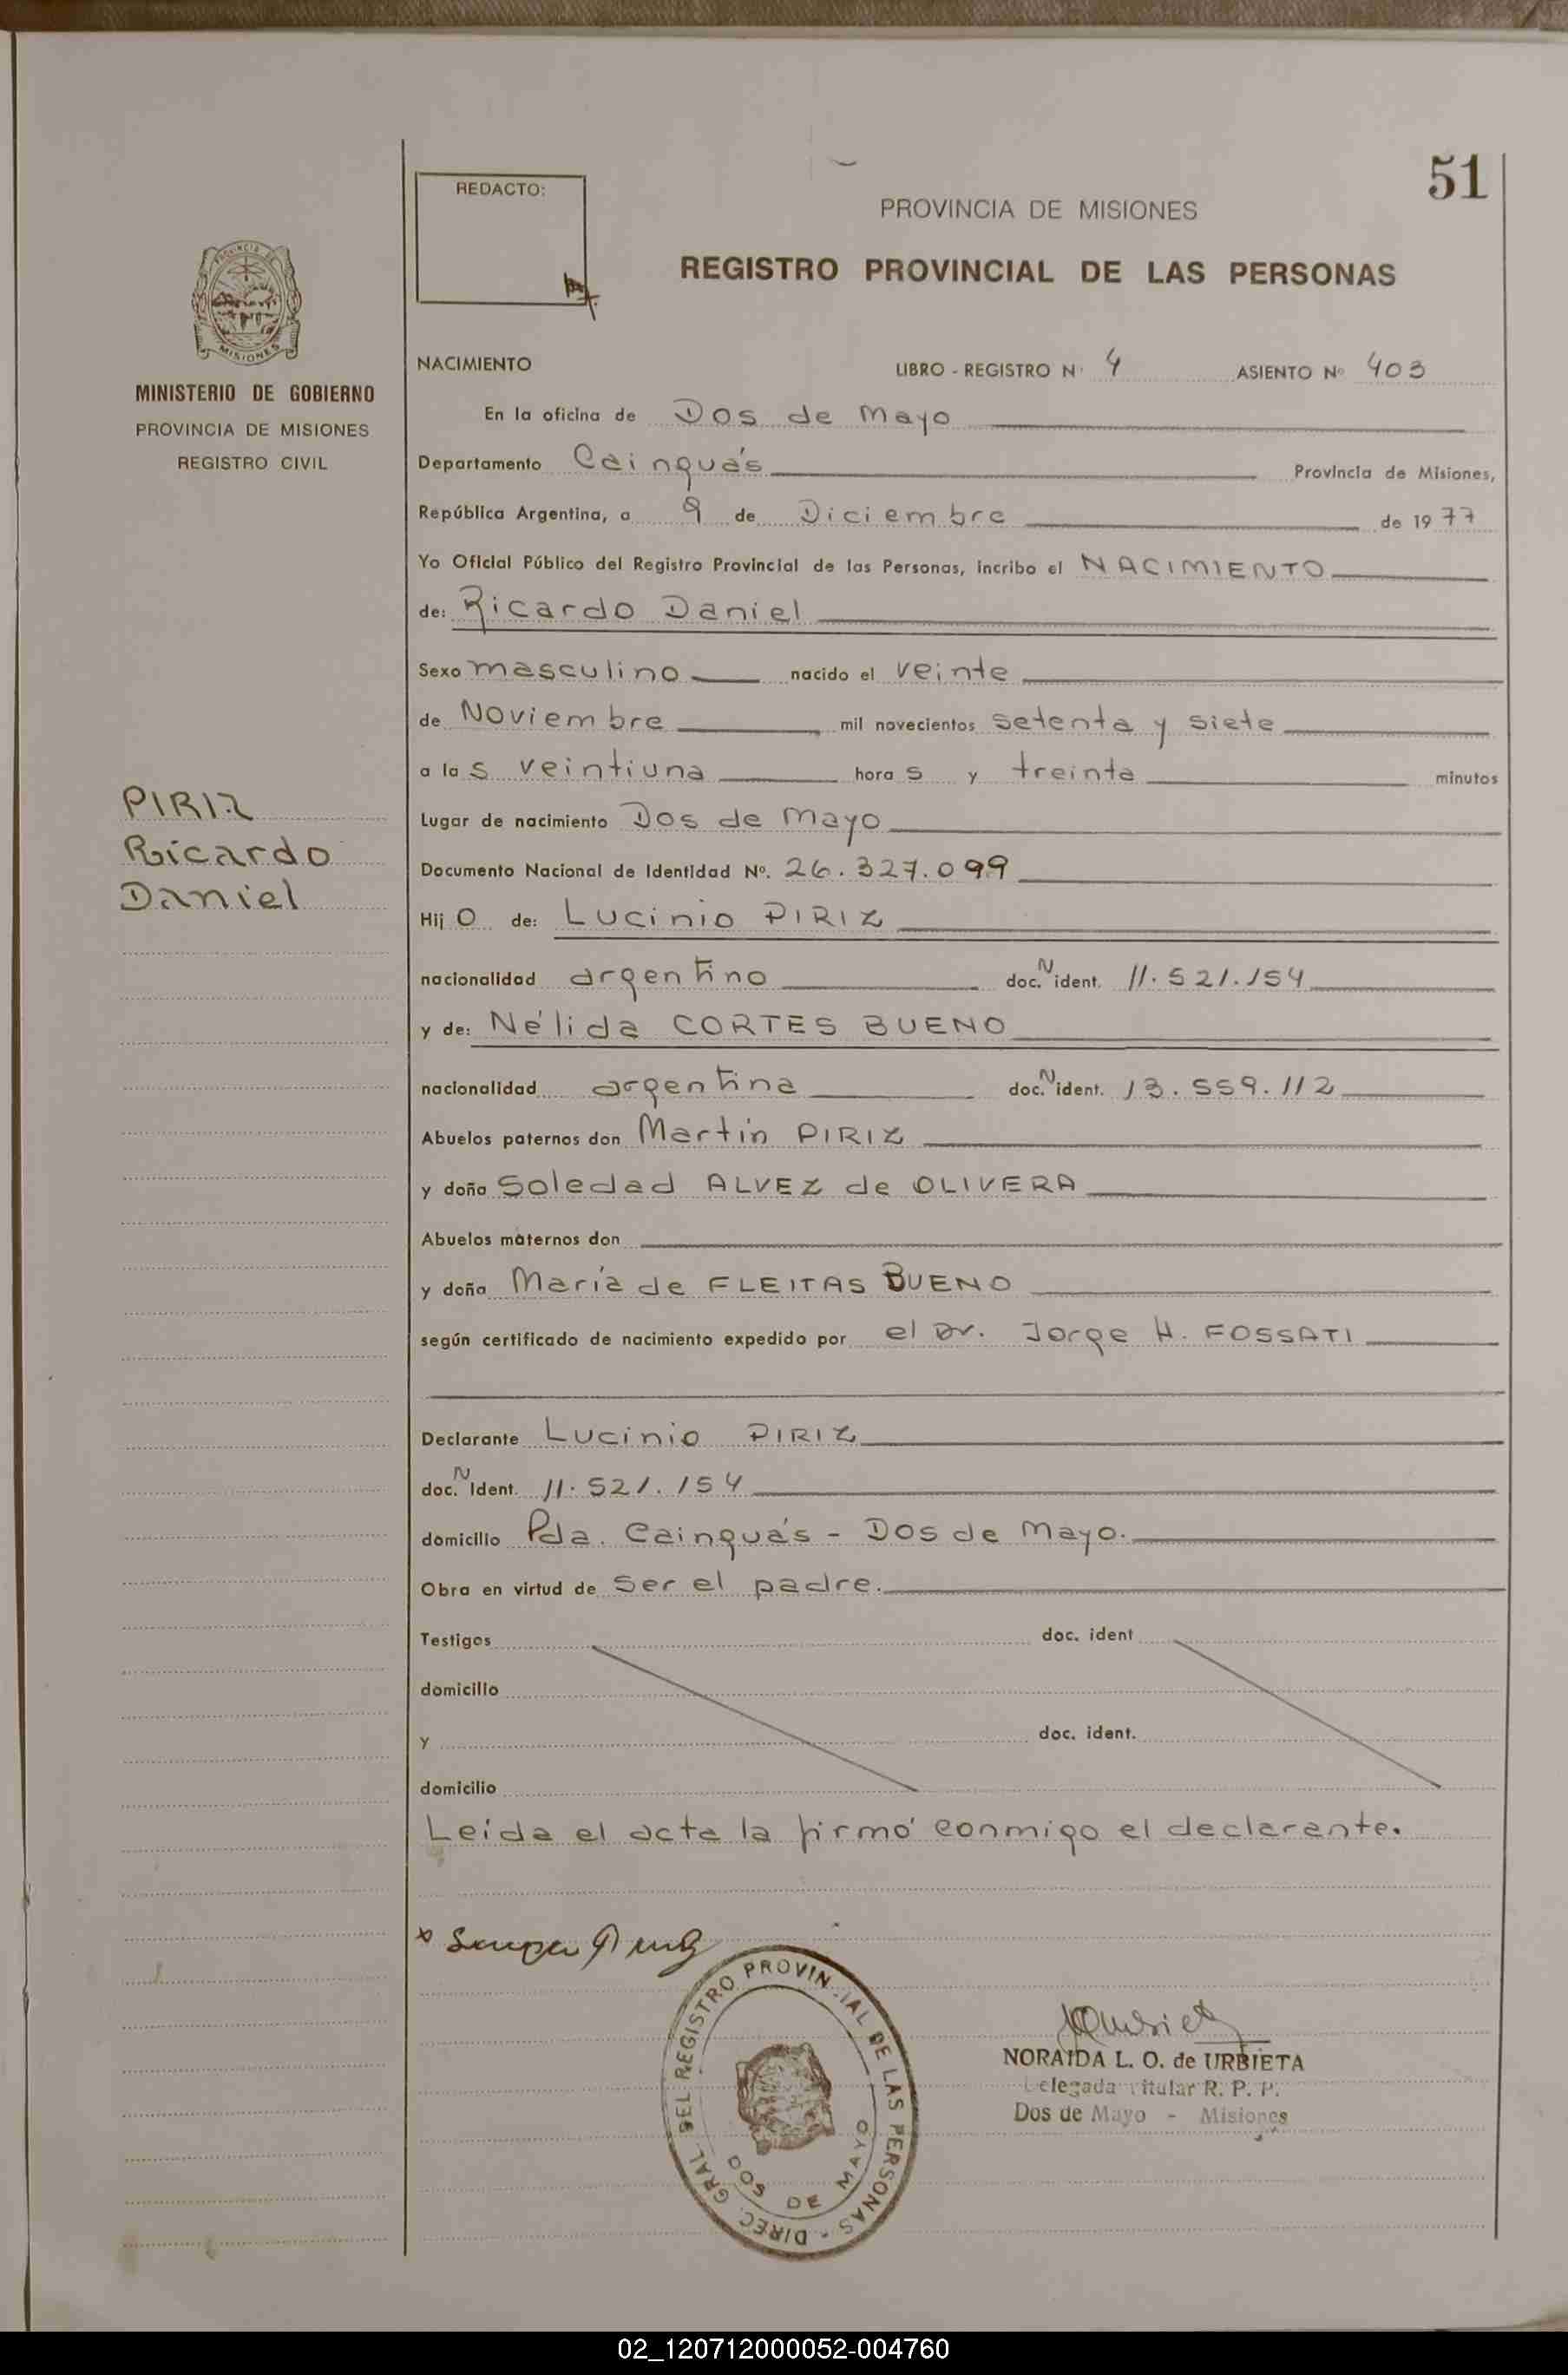 51
REDACTO:
PROVINCIA DE MISIONES
REGISTRO PROVINCIAL DE LAS PERSONAS
PROVINCIA DE
MISIONES
MINISTERIO DE GOBIERNO
PROVINCIA DE MISIONES
REGISTRO CIVIL
NACIMIENTO LIBRO - REGISTRO Nº 4 ASIENTO Nº 403
En la oficina de Dos de Mayo
Departamento Cainguás Provincia de Misiones,
República Argentina, a 9 de Diciembre de 1977
Yo Oficial Público del Registro Provincial de las Personas, incribo el NACIMIENTO
de: Ricardo Daniel
Sexo masculino nacido el veinte
de Noviembre mil novecientos setenta y siete
a las veintiuna horas y treinta minutos
PIRIZ
Ricardo
Daniel
Lugar de nacimiento Dos de Mayo
Documento Nacional de Identidad Nº. 26.327.099
Hijo de: Lucinio PIRIZ
nacionalidad argentino doc. N ident. 11.521.154
y de: Nélida CORTES BUENO
nacionalidad argentina doc. N ident. 13.559.112
Abuelos paternos don Martin PIRIZ
y doña Soledad ALVEZ de OLIVERA
Abuelos maternos don
y doña María de FLEITAS BUENO
según certificado de nacimiento expedido por el Dr. Jorge H. FOSSATI
Declarante Lucinio PIRIZ
doc. N Ident. 11.521.154
domicilio Pda. Cainguás - Dos de Mayo.
Obra en virtud de ser el padre.
Testigos doc. ident
domicilio
y doc. ident.
domicilio
Leída el acta la firmó conmigo el declarante.
DIREC. GRAL DEL REGISTRO PROVINCIAL DE LAS PERSONAS -
DOS DE MAYO
NORAIDA L. O. de URBIETA
Delegada Titular R. P. P.
Dos de Mayo - Misiones
02_120712000052-004760